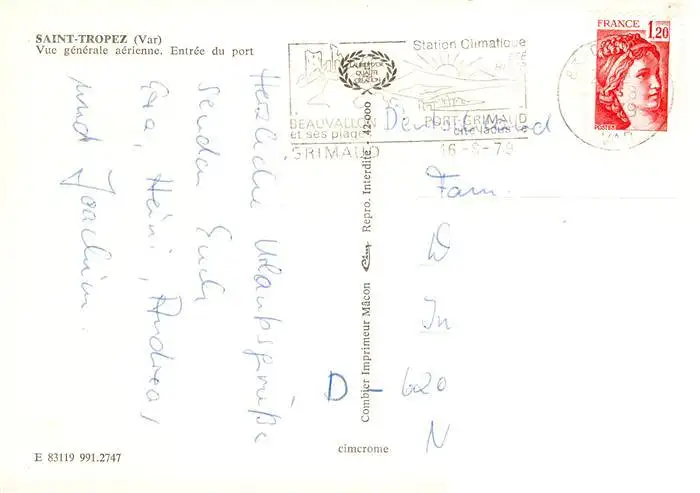 SAINT-TROPEZ (Var)
Vue générale aérienne. Entrée du port
Herzliche Urlaubsgrüße
senden Euch
Eva, Heini, Andreas,
und Joachim.
Station Climatique
ÉTÉ
HIVER
BEAUVALLON
et ses plages
PORT-GRIMAUD
cité lacustre
GRIMAUD
16-8-79
FRANCE 1,20
POSTES
VAR
Deutschland
Fam.
W
In
D - 620
N
Combier Imprimeur Mâcon Cim Repro. Interdite. - A2-000
E 83119 991.2747
cimcrome